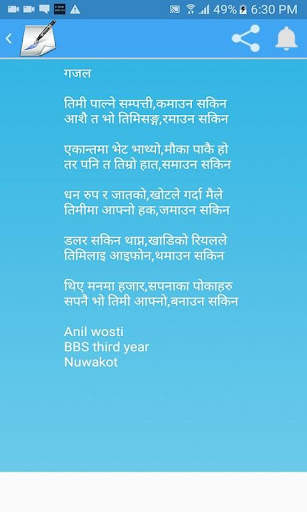 49% 6:30 PM
गजल
तिमी पाल्ने सम्पत्ती,कमाउन सकिन
आशै त भो तिमिसङ्ग,रमाउन सकिन
एकान्तमा भेट भाथ्यो,मौका पाकै हो
तर पनि त तिम्रो हात,समाउन सकिन
धन रुप र जातको,खोटले गर्दा मैले
तिमीमा आफ्नो हक,जमाउन सकिन
डलर सकिन थाप्न,खाडिको रियलले
तिमिलाइ आइफोन,थमाउन सकिन
थिए मनमा हजार,सपनाका पोकाहरु
सपनै भो तिमी आफ्नो,बनाउन सकिन
Anil wosti
BBS third year
Nuwakot